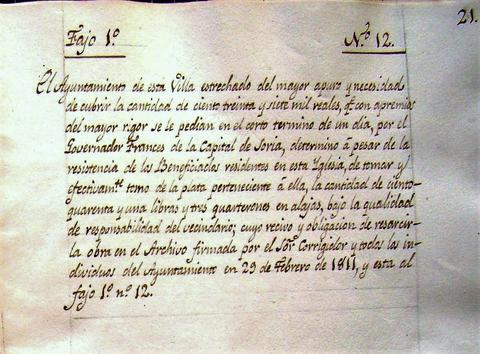 21.
Fajo 1º.
N.º 12.
El Ayuntamiento de esta Villa estrechado del mayor apuro y necesidad
de cubrir la cantidad de ciento treinta y siete mil reales, q.e con apremio
del mayor rigor se le pedian en el corto termino de un dia, por el
Governador Frances de la Capital de Soria, determinó á pesar de la
resistencia de los Beneficiados residentes en esta Yglesia, de tomar y
efectivam.te tomo de la plata perteneciente á ella, la cantidad de ciento
quarenta y una libras y tres quarterones en alajas, bajo la qualidad
de responsabilidad del vecindario; cuyo recivo y obligacion de resarcir-
la obra en el Archivo firmada por el Sor. Corregidor y todos los in-
dividuos del Ayuntamiento en 29 de Febrero de 1811, y esta al
fajo 1º. nº 12.